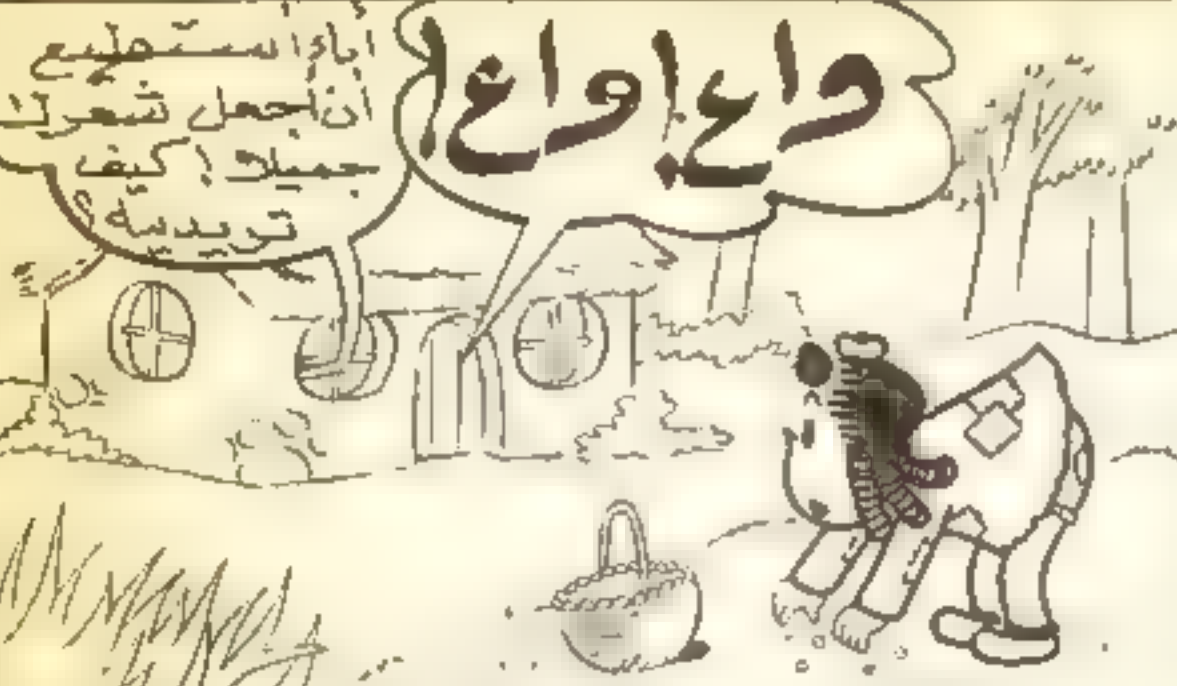 واع ! واع !
أنا أستطيع
أن أجعل شعرك
جميلا ! كيف
تريدينه ؟